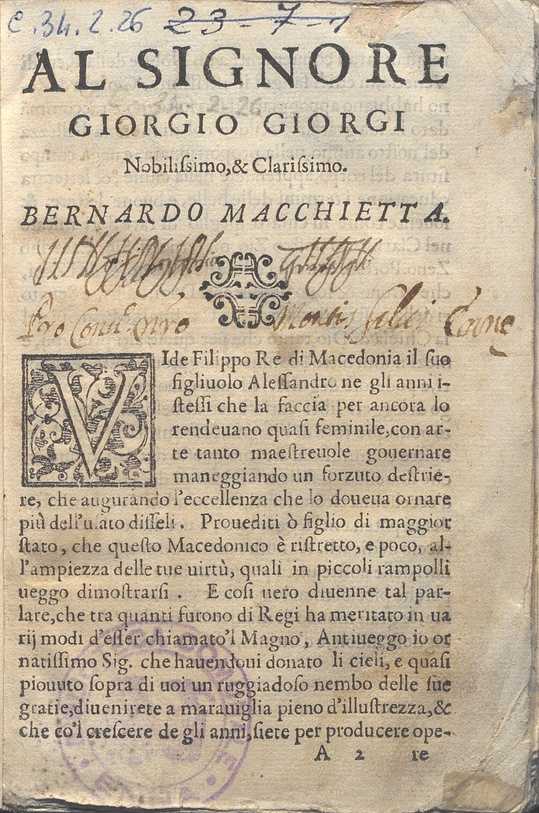 C.34.2.26 23-7-1
AL SIGNORE
34-2-26
GIORGIO GIORGI
Nobiliſſimo,& Clariſſimo.
BERNARDO MACCHIETTA.
Pro Montis
VIde Filippo Re di Macedonia il ſuo
figliuolo Aleſſandro ne gli anni i-
ſteſſi che la faccia per ancora lo
rendeuano quaſi feminile, con ar-
te tanto maeſtreuole gouernare
maneggiando un forzuto deſtrie-
re, che augurando l'eccellenza che lo doueua ornare
più dell'uſato diſſeli. Prouediti ò figlio di maggior
ſtato, che queſto Macedonico è riſtretto, e poco, al-
l'ampiezza delle tue virtù, quali in piccoli rampolli
ueggo dimoſtrarſi. E coſi uero diuenne tal par-
lare, che tra quanti furono di Regi ha meritato in ua
rij modi d'eſſer chiamato'l Magno, Antiueggo io or
natiſſimo Sig. che hauendoui donato li cieli, e quaſi
piouuto ſopra di uoi un ruggiadoſo nembo delle ſue
gratie, diuenirete a marauiglia pieno d'illuſtrezza, &
che co'l creſcere de gli anni, ſiete per producere ope-
A 2 re